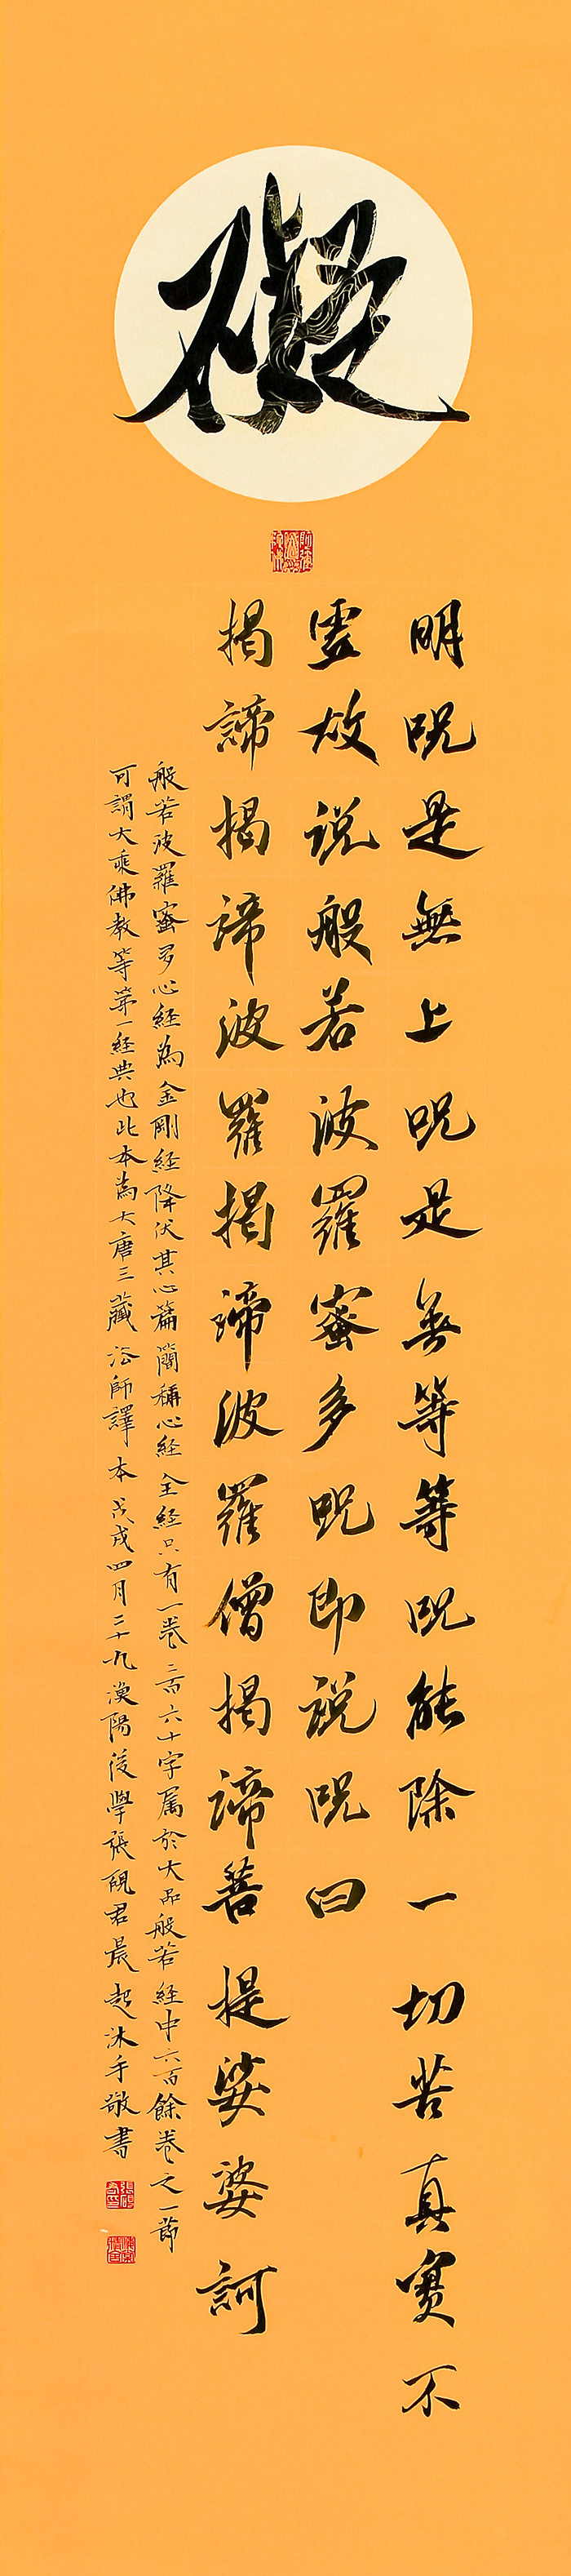 礙
明呪是無上呪是無等等呪能除一切苦真實不
虛故說般若波羅蜜多呪即說呪曰
揭諦揭諦波羅揭諦波羅僧揭諦菩提娑婆訶
般若波羅蜜多心経為金剛経降伏其心篇簡稱心経全経只有一卷二百六十字属於大品般若経中六百餘卷之一節
可謂大乘佛教等第一経典也此本為大唐三藏法師譯本戊戌四月二十九漢陽後學張硯君晨起沐手敬書